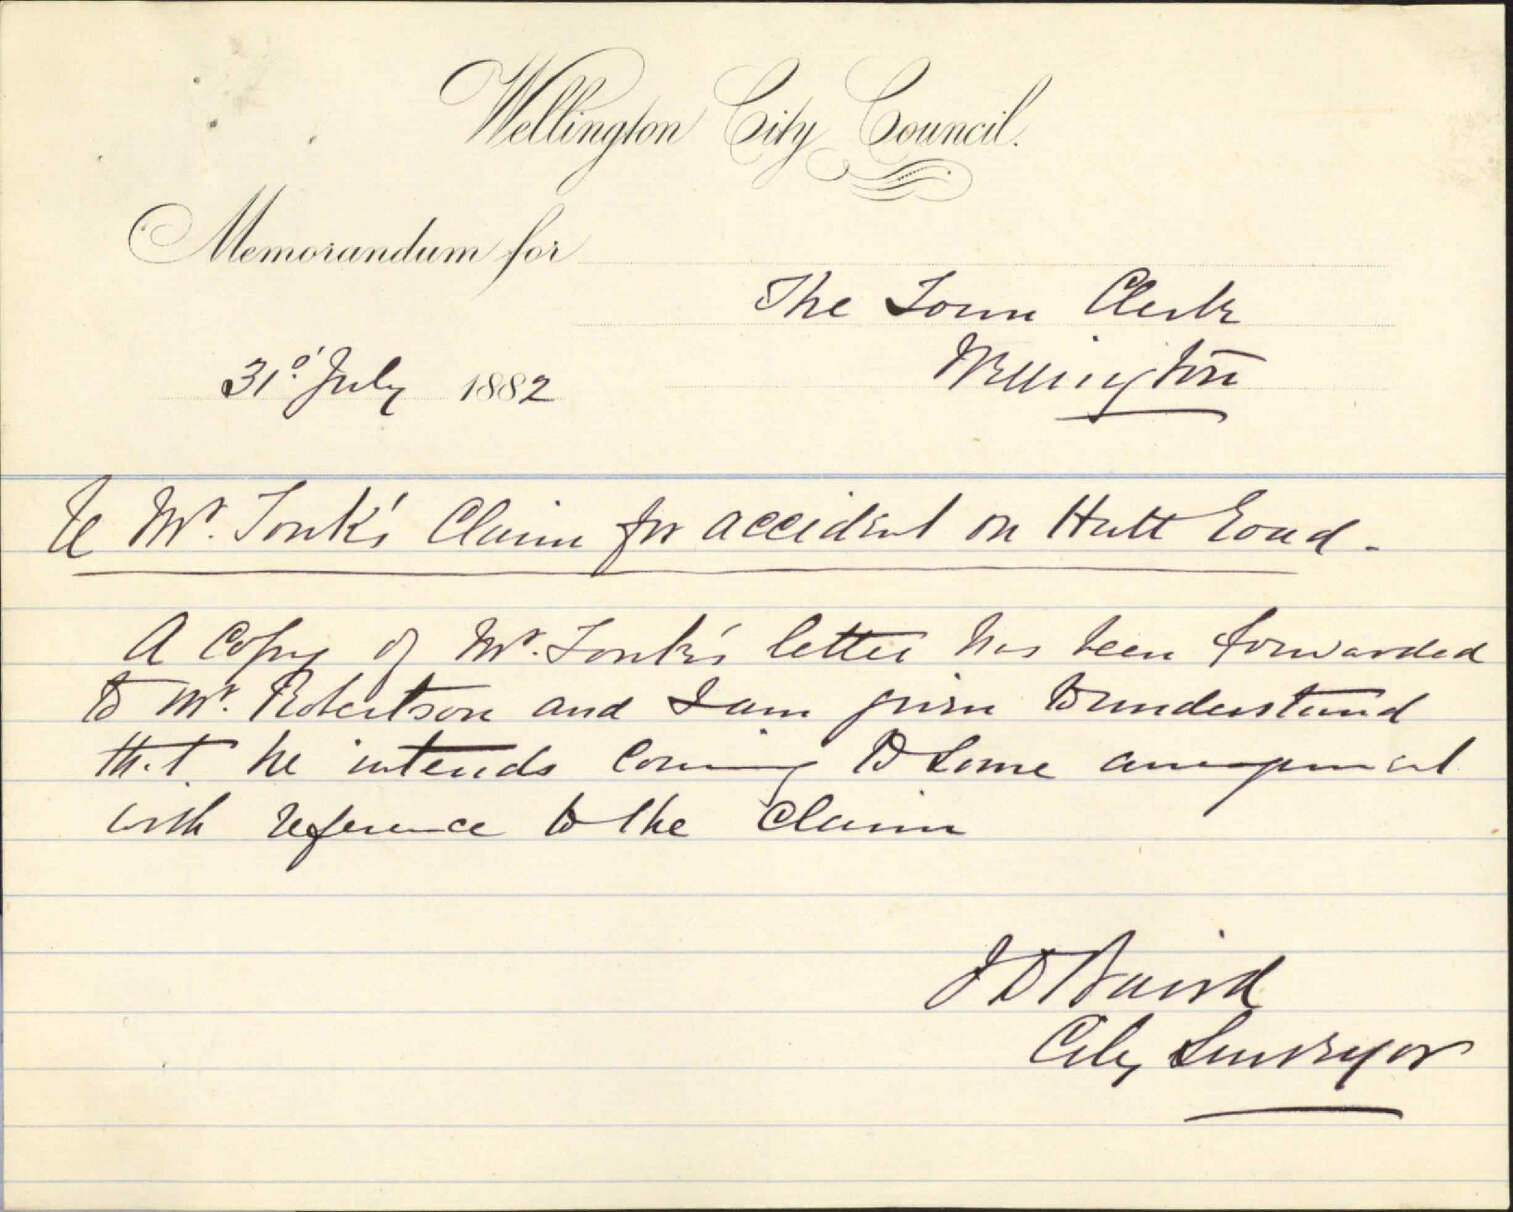 Wellington City Council.
Memorandum for
The Town Clerk
Wellington
31st July 1882
Re Mr. Tonk's Claim for accident on Hutt Road.
A Copy of Mr. Tonk's letter has been forwarded
to Mr. Robertson and I am given to understand
that he intends coming to some arrangement
with reference to the Claim
J D Baird
City Surveyor